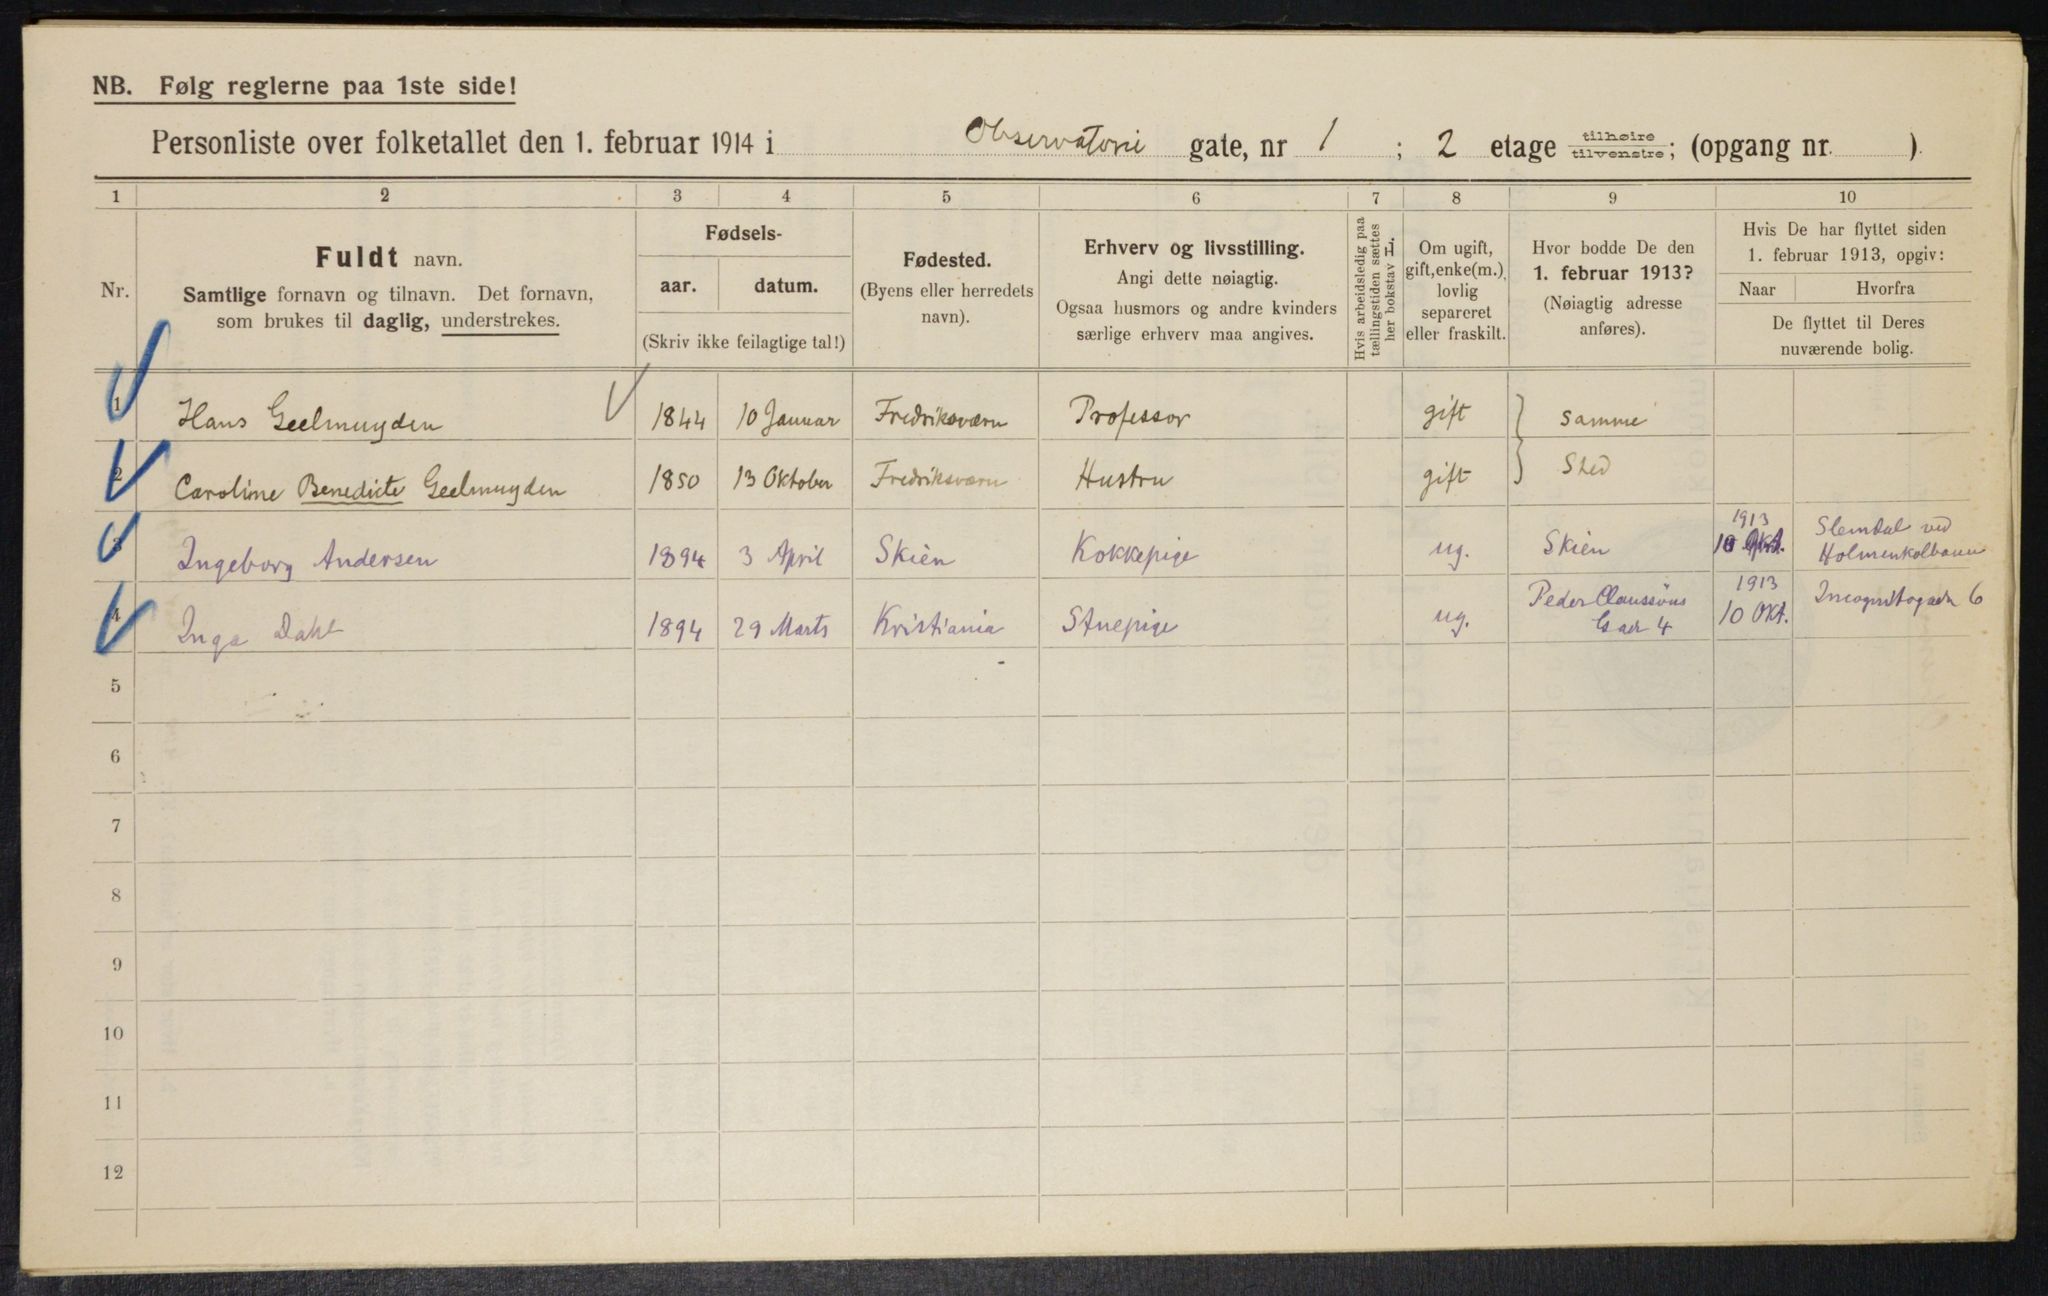 NB. Følg reglerne paa 1ste side!
Personliste over folketallet den 1. februar 1914 i Observatorie gate, nr 1 ; 2 etage tilhøire/tilvenstre; (opgang nr. )
1 2 3 4 5 6 7 8 9 10
Nr.
Fuldt navn.
Samtlige fornavn og tilnavn. Det fornavn,
som brukes til daglig, understrekes.
Fødsels-
aar. datum.
(Skriv ikke feilagtige tal!)
Fødested.
(Byens eller herredets
navn).
Erhverv og livsstilling.
Angi dette nøiagtig.
Ogsaa husmors og andre kvinders
særlige erhverv maa angives.
Hvis arbeidsledig paa
tællingstiden sættes
her bokstav L.
Om ugift,
gift, enke(m.),
lovlig
separeret
eller fraskilt.
Hvor bodde De den
1. februar 1913?
(Nøiagtig adresse
anføres).
Hvis De har flyttet siden
1. februar 1913, opgiv:
Naar Hvorfra
De flyttet til Deres
nuværende bolig.
1 Hans Geelmuyden 1844 10 Januar Fredriksværn Professor gift samme
2 Caroline Benedicte Geelmuyden 1850 13 Oktober Fredriksværn Hustru gift Sted
3 Ingeborg Andersen 1894 3 April Skien Kokkepige ug. Skien 1913 10 Okt. Slemdal ved
Holmenkolbanen
4 Inga Dahl 1894 29 Marts Kristiania Stuepige ug. Peder Claussøns
Gade 4 1913 10 Okt. Incognitogade 6
5
6
7
8
9
10
11
12